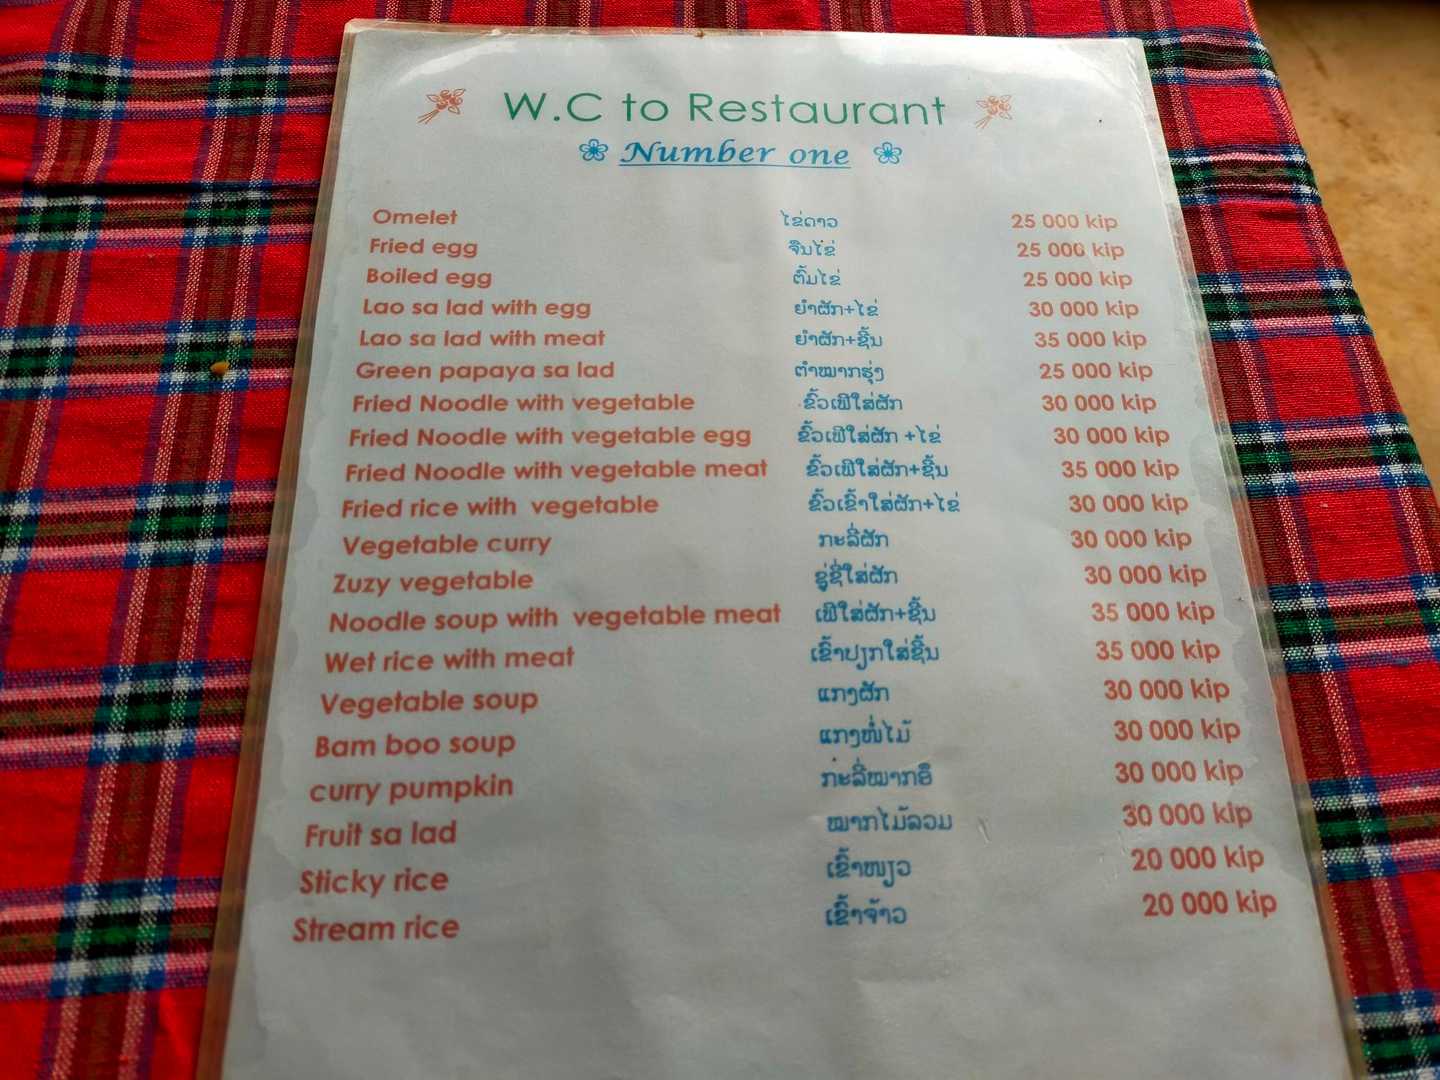 W.C to Restaurant
Number one
Omelet ໄຂ່ດາວ 25 000 kip
Fried egg ຈືນໄຂ່ 25 000 kip
Boiled egg ຕົ້ມໄຂ່ 25 000 kip
Lao sa lad with egg ຍຳຜັກ+ໄຂ່ 30 000 kip
Lao sa lad with meat ຍຳຜັກ+ຊີ້ນ 35 000 kip
Green papaya sa lad ຕຳໝາກຮຸ່ງ 25 000 kip
Fried Noodle with vegetable ຂົ້ວເຝີໃສ່ຜັກ 30 000 kip
Fried Noodle with vegetable egg ຂົ້ວເຝີໃສ່ຜັກ +ໄຂ່ 30 000 kip
Fried Noodle with vegetable meat ຂົ້ວເຝີໃສ່ຜັກ+ຊີ້ນ 35 000 kip
Fried rice with vegetable ຂົ້ວເຂົ້າໃສ່ຜັກ+ໄຂ່ 30 000 kip
Vegetable curry ກະລີ່ຜັກ 30 000 kip
Zuzy vegetable ຊູ່ຊີ່ໃສ່ຜັກ 30 000 kip
Noodle soup with vegetable meat ເຝີໃສ່ຜັກ+ຊີ້ນ 35 000 kip
Wet rice with meat ເຂົ້າປຽກໃສ່ຊີ້ນ 35 000 kip
Vegetable soup ແກງຜັກ 30 000 kip
Bam boo soup ແກງໜໍ່ໄມ້ 30 000 kip
curry pumpkin ກະລີ່ໝາກອຶ 30 000 kip
Fruit sa lad ໝາກໄມ້ລວມ 30 000 kip
Sticky rice ເຂົ້າໜຽວ 20 000 kip
Stream rice ເຂົ້າຈ້າວ 20 000 kip